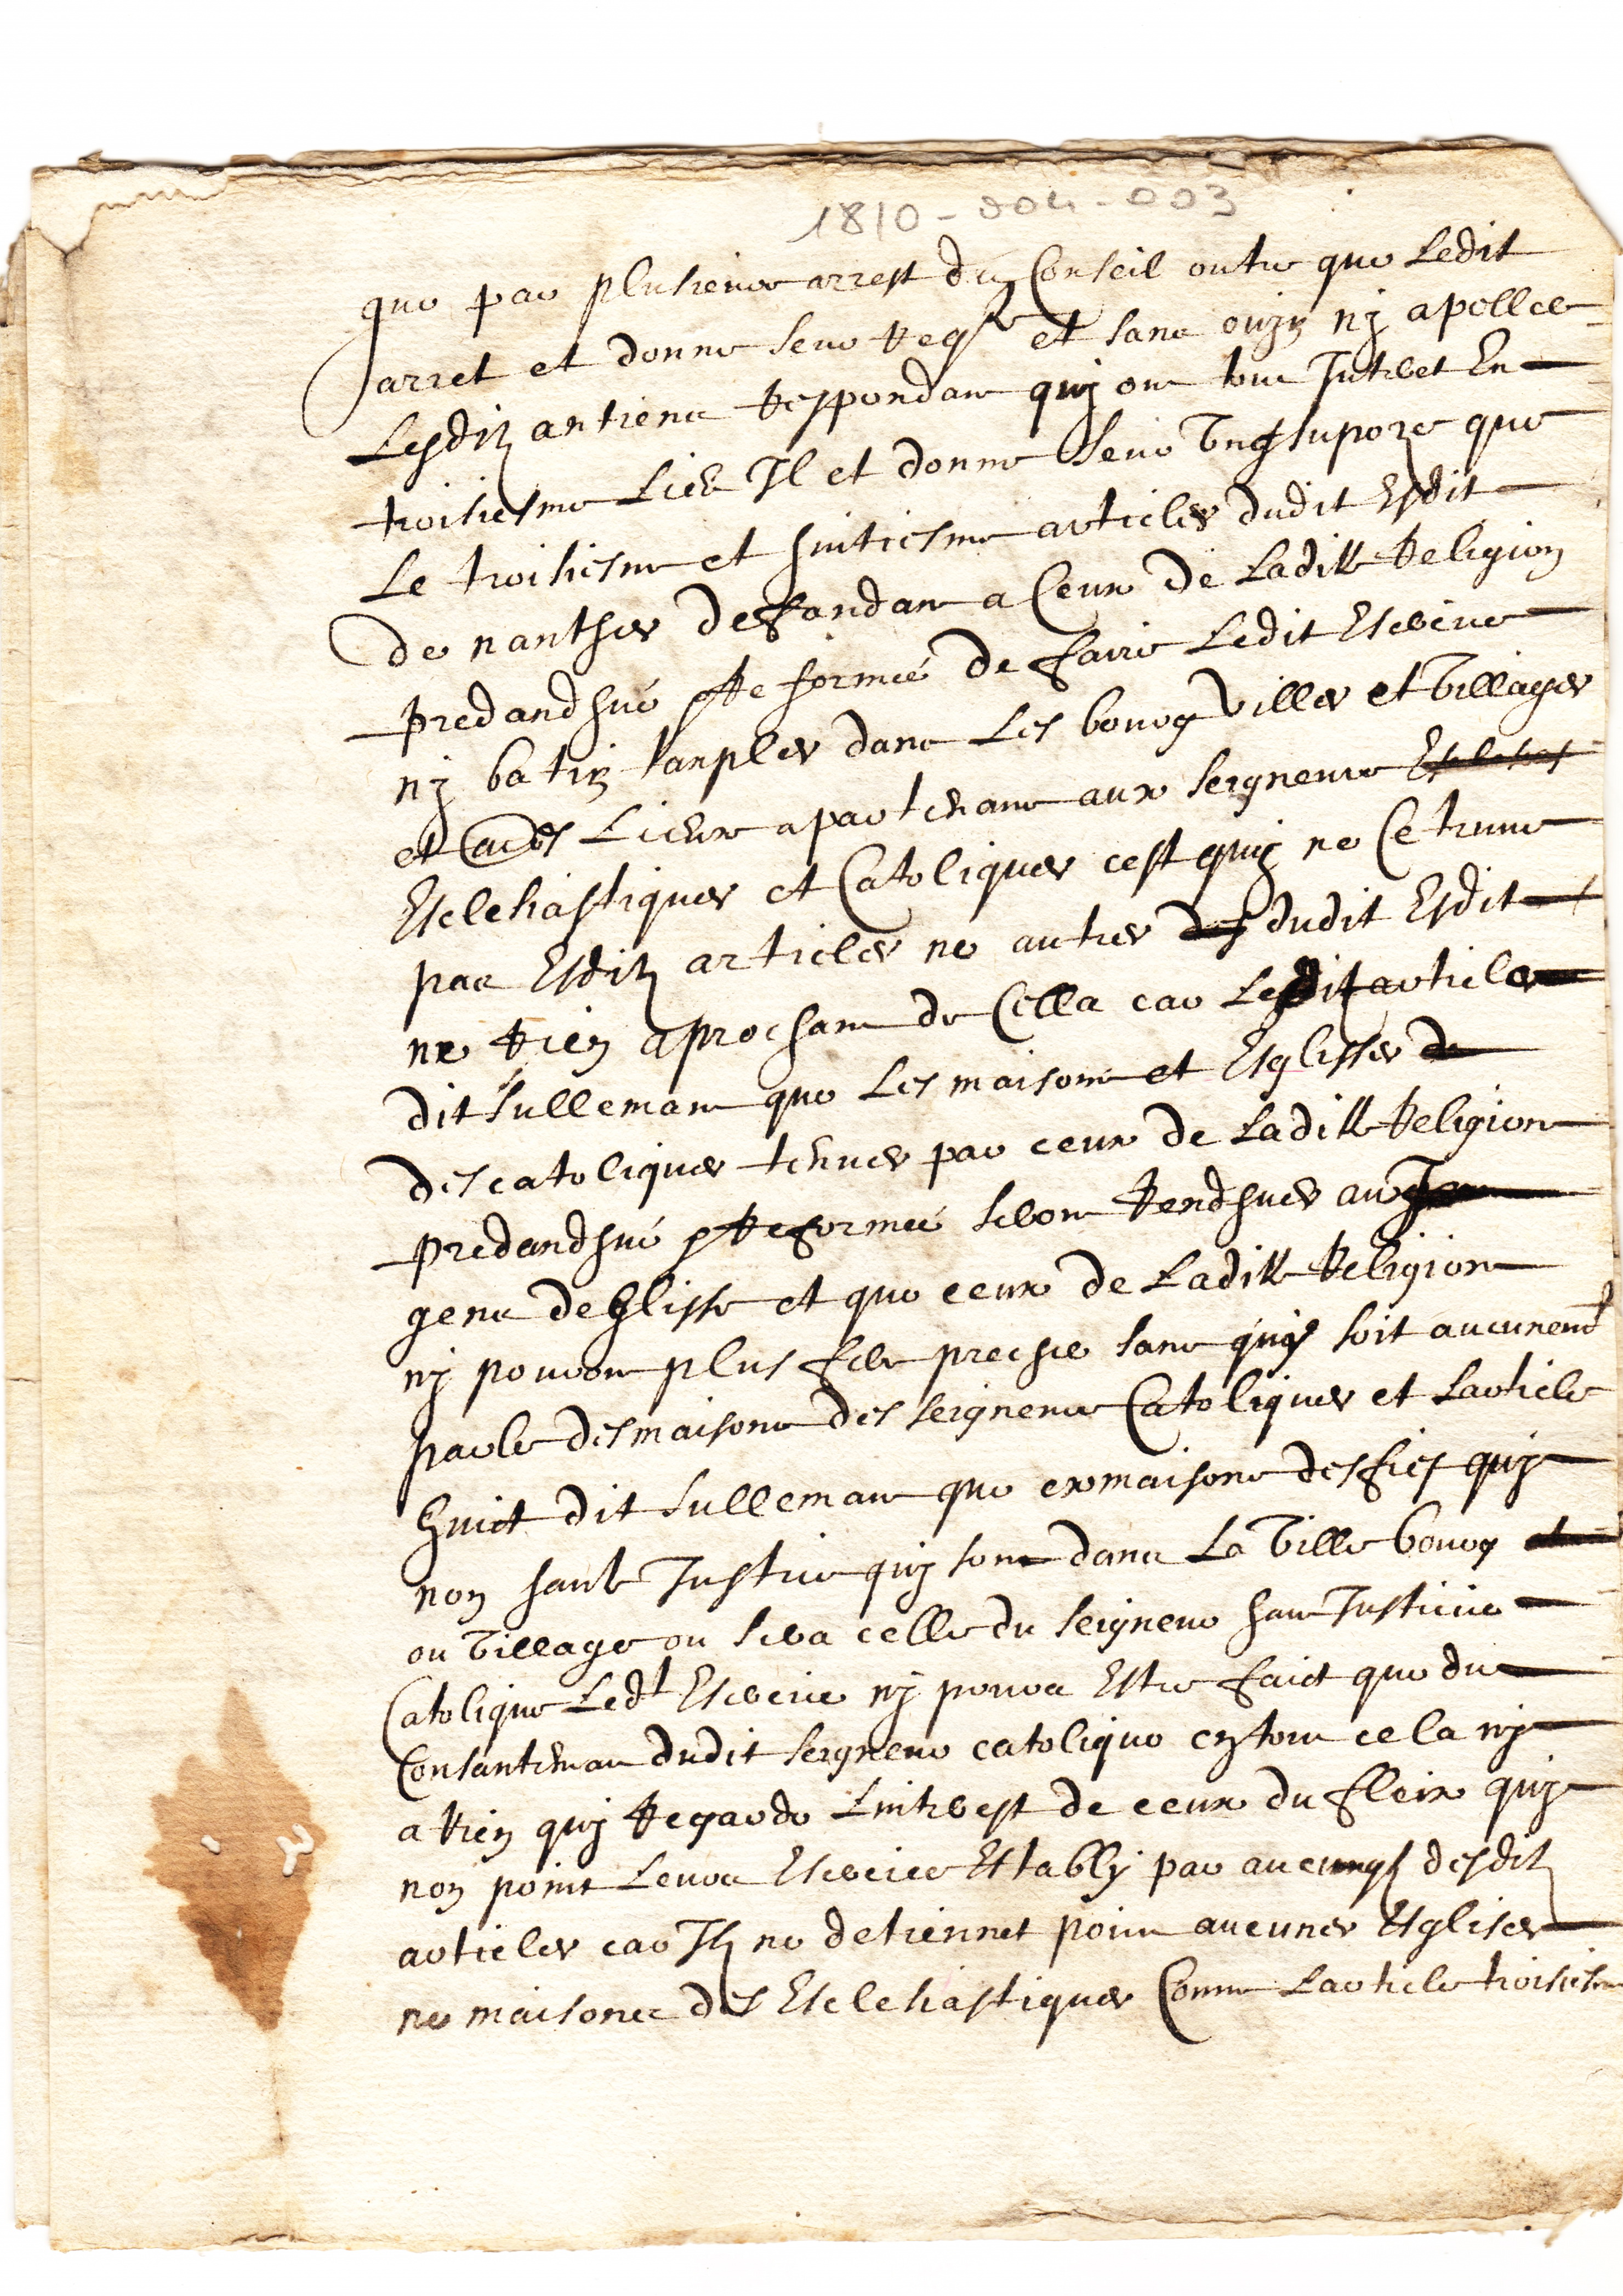 1810-004-003
que par plusieurs arrest du Conseil outre que Ledit
arret et donne seur Reqte et sans ouyr ny apelles
Lesdiz antiens Respondans quy ont tout Interet En
troisiesme Lieu Il et donne seur Ung supoze que
Le troisiesme et huitiesme articles dudit Esdit
de nanthes desfandant a Ceux de Ladite Religion
predandhue Reformée de faire Ledit Exercice
ny batir tanples dans Les bourg villes et Villages
et Lieux apartenans aux seigneurs
Eclehiastiques et Catoliques cest quy ne Ce truve
pas Esdiz articles ne autres dudit Esdit
ne Rien aprochant de Cella car Lesdit articles
dit sullemant que Les maisons et Esglisses
des catoliques tenues par ceux de Ladite Religion
predandhue Reformée seront Rendhues aux
gens deglisse et que ceux de Ladite Religion
ny pouront plus fere preche sans quy soit aucunemt
parle des maisons des seigneurs Catoliques et Larticle
huict dit sullemant que ex maisons des fiefs quy
non haute Justice quy sont dans La Ville bourg
ou Village ou sera celle du seigneur haut Justicier
Catolique Ledt Exercice ny poura Estre faict que du
Consantemant dudit seigneur catolique en tout cela ny
a Rien quy Regarde Linterest de ceux du fleix quy
non point Leurs Exercice Estably par aucungs desdiz
articles car Ilz ne detiennet point aucunes Esglises
ne maisons des Eclehiastiques Comme Larticle troisiesme